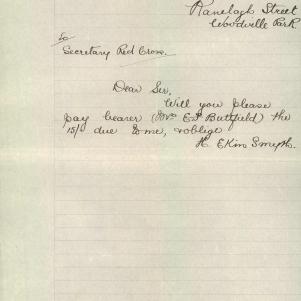 Ranelagh Street
Woodville Park
To
Secretary Red Cross.
Dear Sir,
Will you please
pay bearer (Mrs E. J. Buttfield) the
15/- due to me, & oblige
H. Ekins Smyth.